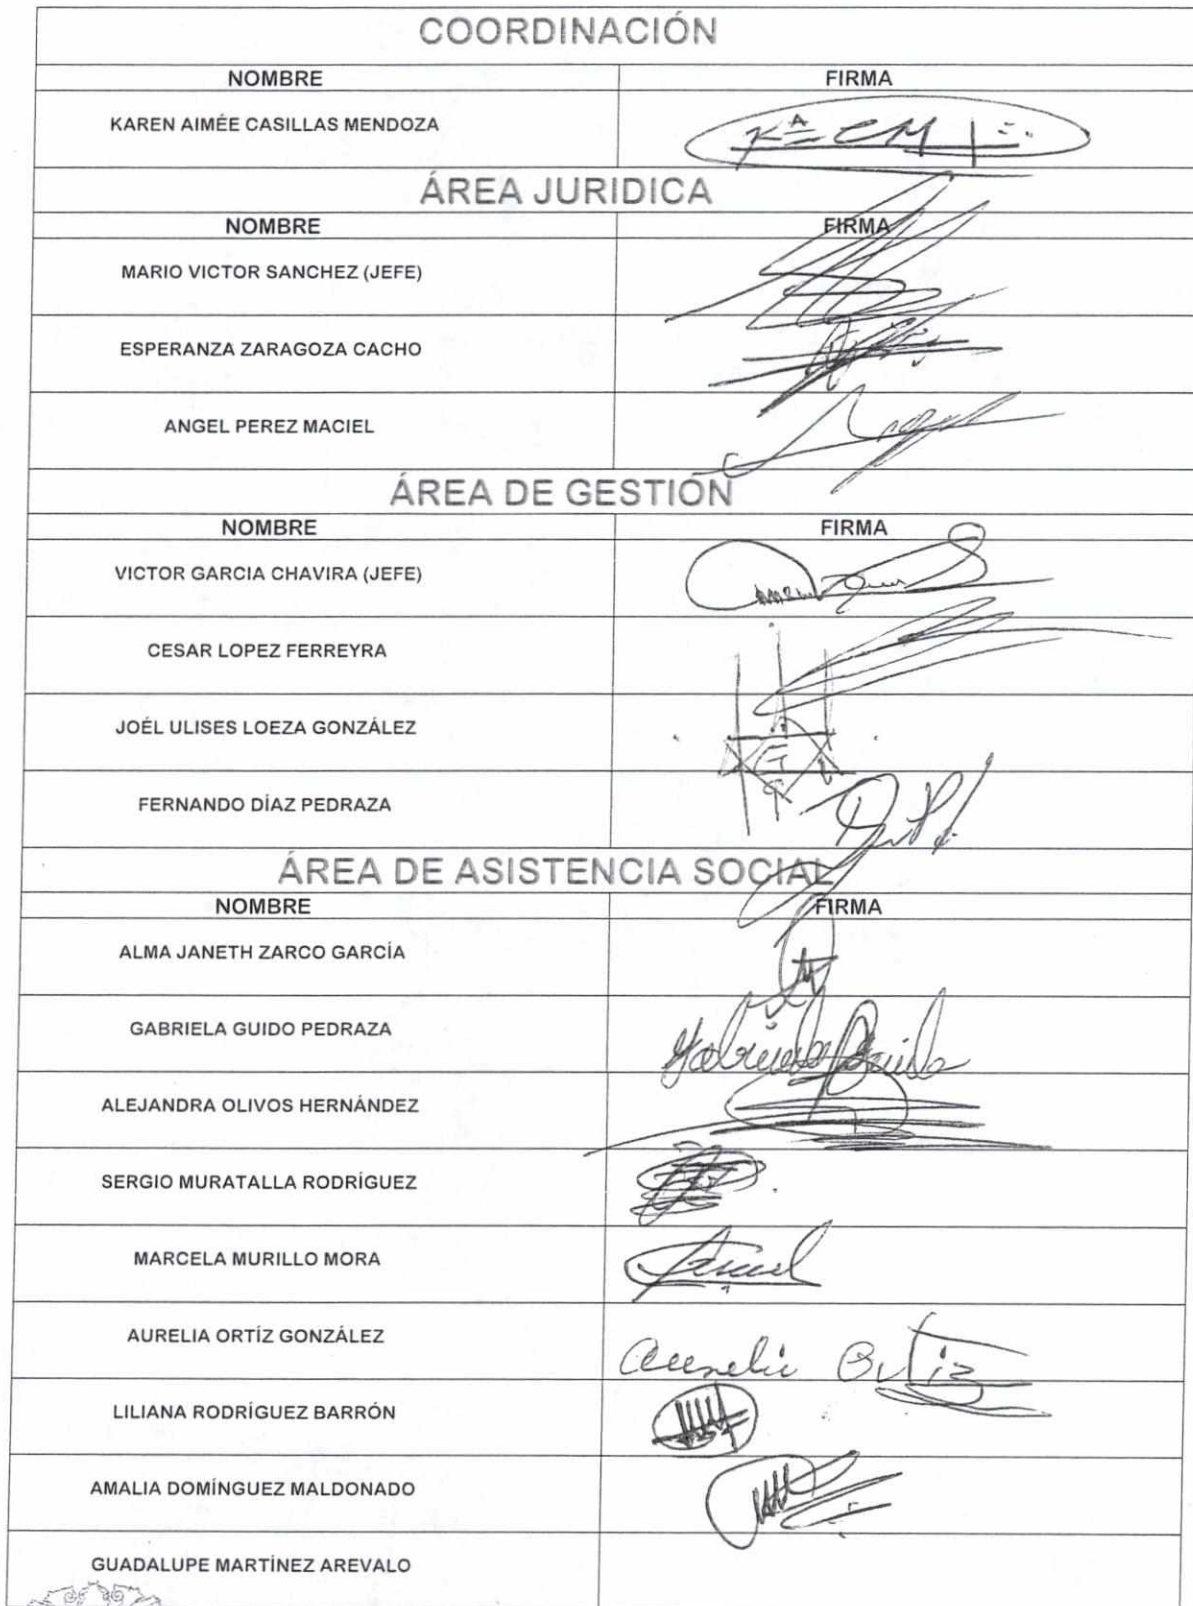 COORDINACIÓN
NOMBRE FIRMA
KAREN AIMÉE CASILLAS MENDOZA
ÁREA JURIDICA
NOMBRE FIRMA
MARIO VICTOR SANCHEZ (JEFE)
ESPERANZA ZARAGOZA CACHO
ANGEL PEREZ MACIEL
ÁREA DE GESTIÓN
NOMBRE FIRMA
VICTOR GARCIA CHAVIRA (JEFE)
CESAR LOPEZ FERREYRA
JOÉL ULISES LOEZA GONZÁLEZ
FERNANDO DÍAZ PEDRAZA
ÁREA DE ASISTENCIA SOCIAL
NOMBRE FIRMA
ALMA JANETH ZARCO GARCÍA
GABRIELA GUIDO PEDRAZA Gabriela Guido
ALEJANDRA OLIVOS HERNÁNDEZ
SERGIO MURATALLA RODRÍGUEZ
MARCELA MURILLO MORA
AURELIA ORTÍZ GONZÁLEZ Aurelia Ortiz
LILIANA RODRÍGUEZ BARRÓN
AMALIA DOMÍNGUEZ MALDONADO
GUADALUPE MARTÍNEZ AREVALO